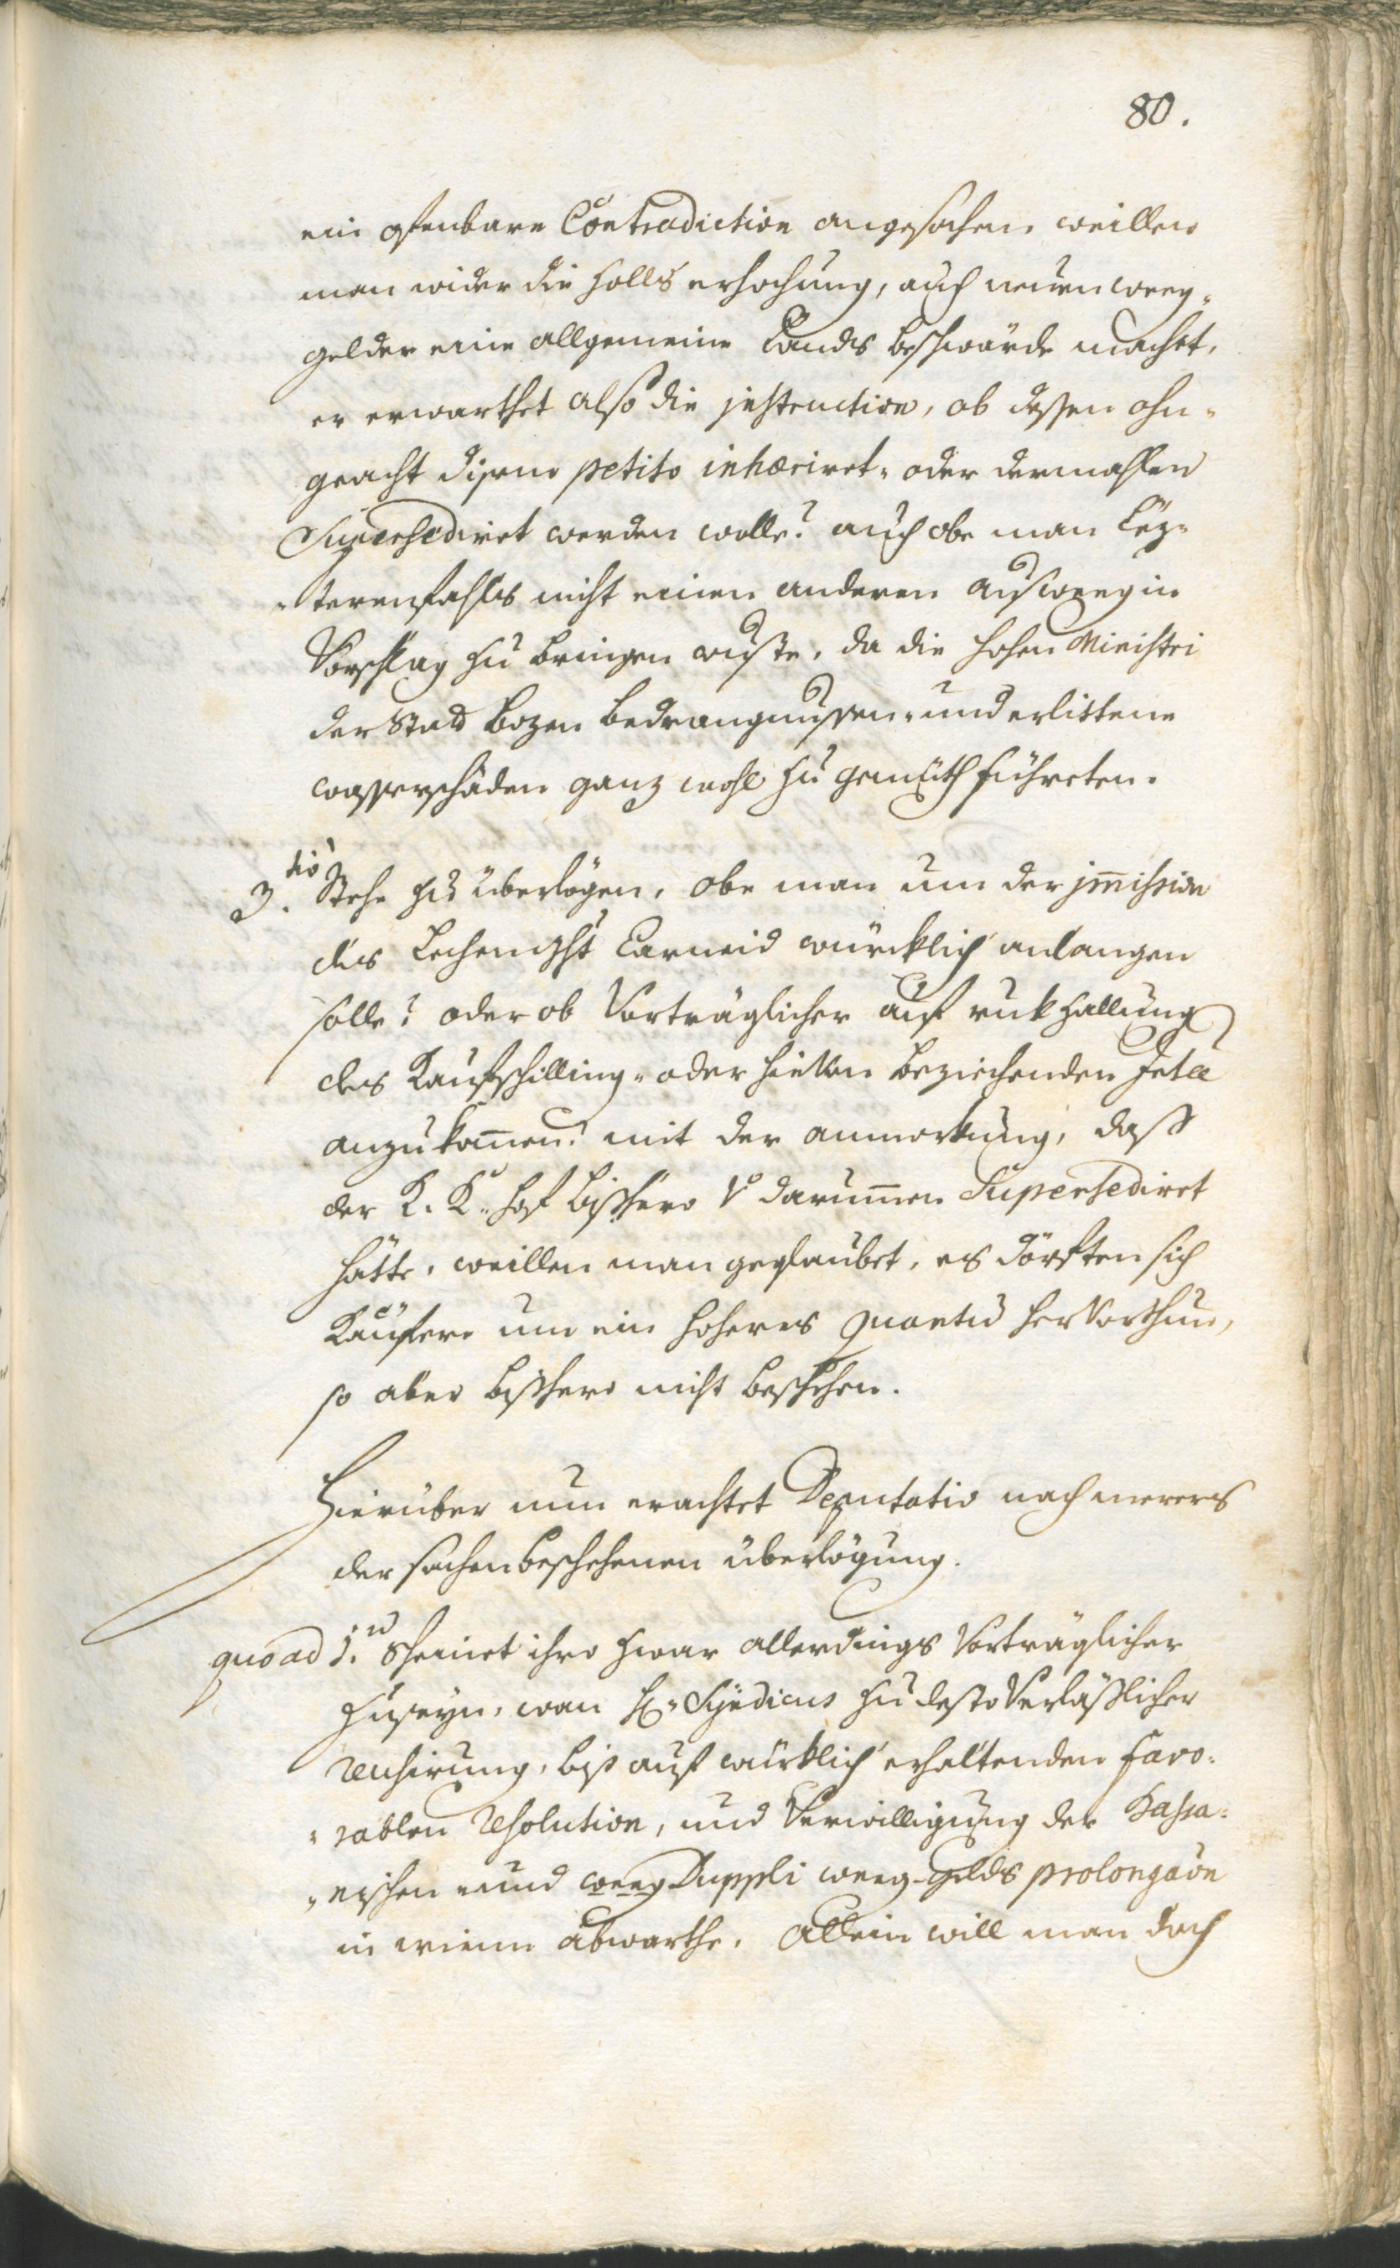 80.
ein ofenbare Contradiction angesechen weillen
man wider die Zolls erhochung, auch neuen weeg-
gelder eine allgemeine Lands beschwärde machet,
er erwarthet also die jnstruction, ob dessen ohn-
geacht disem petito inhæriret- oder dermahlen
Supersediret werden wolle? auch obe man Lez-
-terenfahls nicht einen anderen ausweeg in
Vorschlag zu bringen wuste, da die hohen Ministri
der Stadt Bozen bedrangnussen- und erlittene
wasserschäden ganz wohl zu gemüth führeten.
3.tiò Stehe zu überlögen, obe man um der jm̄ission
des Lechengehts Carneid würcklich anlangen
solle? oder ob Vorträglicher auf ruckzallung
des Kaufschilling- oder hievon beziechenden
anzukom̄en? mit der anmerkung, dass
der K. K. hof bishero darum̄en Supersediret
hätte, weillen man geglaubet, es dörften sich
Käufere um ein hoheres quantū hervorthun,
so aber bishero nicht beschehen.
Hierüber nun erachtet Deputatio nach merers
der sachen beschehenen überlögung.
quoad 1.m Scheinet ihro zwar allerdings Vorträglicher
zu seyn, wan H. Syndicus zu desto Verläslicher
Ausirung, bis auf würklich erhaltenden favo-
-rablen resolution, und Verwilligung der Bassa-
-nischen und weeg Duppli weeg-gelds prolongāon
in wienn abwarthe. Allein will man doch